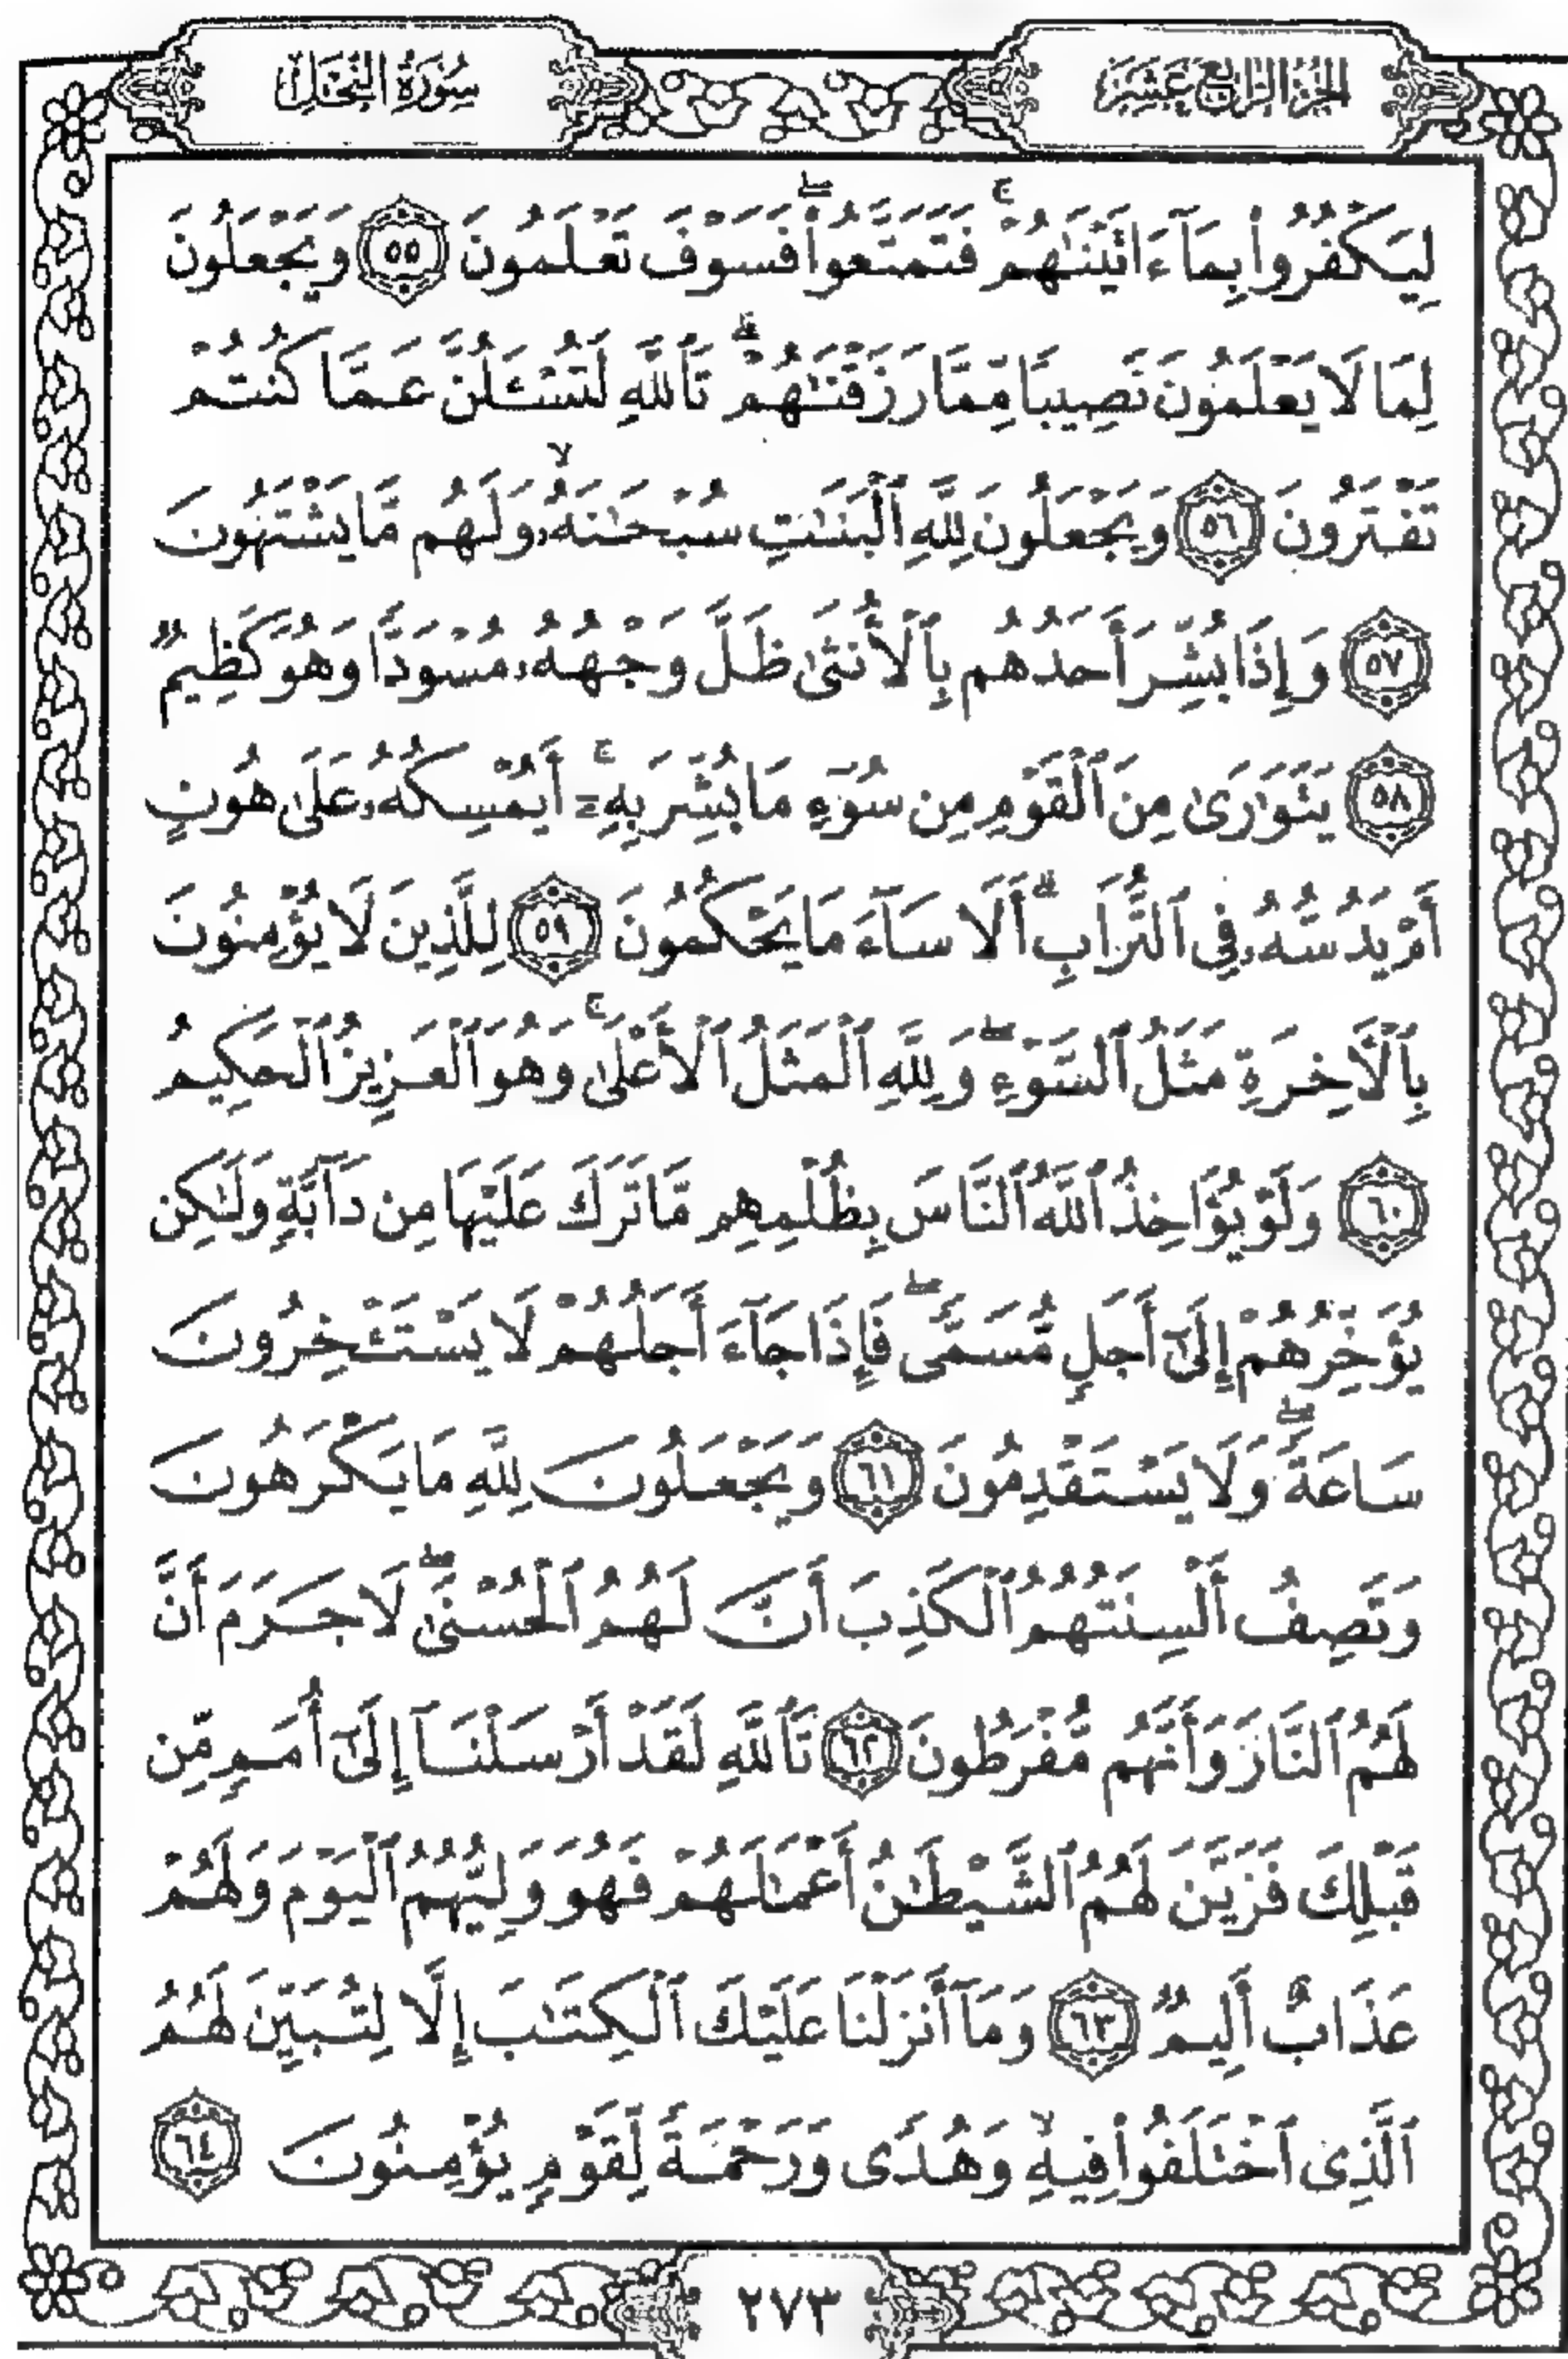 الجزء الرابع عشر
سورة النحل
لِيَكْفُرُوا۟ بِمَآ ءَاتَيْنَٰهُمْ ۚ فَتَمَتَّعُوا۟ ۖ فَسَوْفَ تَعْلَمُونَ ٥٥ وَيَجْعَلُونَ
لِمَا لَا يَعْلَمُونَ نَصِيبًا مِّمَّا رَزَقْنَٰهُمْ ۗ تَٱللَّهِ لَتُسْـَٔلُنَّ عَمَّا كُنتُمْ
تَفْتَرُونَ ٥٦ وَيَجْعَلُونَ لِلَّهِ ٱلْبَنَٰتِ سُبْحَٰنَهُۥ ۙ وَلَهُم مَّا يَشْتَهُونَ
٥٧ وَإِذَا بُشِّرَ أَحَدُهُم بِٱلْأُنثَىٰ ظَلَّ وَجْهُهُۥ مُسْوَدًّا وَهُوَ كَظِيمٌ
٥٨ يَتَوَٰرَىٰ مِنَ ٱلْقَوْمِ مِن سُوٓءِ مَا بُشِّرَ بِهِۦٓ ۚ أَيُمْسِكُهُۥ عَلَىٰ هُونٍ
أَمْ يَدُسُّهُۥ فِى ٱلتُّرَابِ ۗ أَلَا سَآءَ مَا يَحْكُمُونَ ٥٩ لِلَّذِينَ لَا يُؤْمِنُونَ
بِٱلْـَٔاخِرَةِ مَثَلُ ٱلسَّوْءِ ۖ وَلِلَّهِ ٱلْمَثَلُ ٱلْأَعْلَىٰ ۚ وَهُوَ ٱلْعَزِيزُ ٱلْحَكِيمُ
٦٠ وَلَوْ يُؤَاخِذُ ٱللَّهُ ٱلنَّاسَ بِظُلْمِهِم مَّا تَرَكَ عَلَيْهَا مِن دَآبَّةٍ وَلَٰكِن
يُؤَخِّرُهُمْ إِلَىٰٓ أَجَلٍ مُّسَمًّى ۖ فَإِذَا جَآءَ أَجَلُهُمْ لَا يَسْتَـْٔخِرُونَ
سَاعَةً ۖ وَلَا يَسْتَقْدِمُونَ ٦١ وَيَجْعَلُونَ لِلَّهِ مَا يَكْرَهُونَ
وَتَصِفُ أَلْسِنَتُهُمُ ٱلْكَذِبَ أَنَّ لَهُمُ ٱلْحُسْنَىٰ ۖ لَا جَرَمَ أَنَّ
لَهُمُ ٱلنَّارَ وَأَنَّهُم مُّفْرَطُونَ ٦٢ تَٱللَّهِ لَقَدْ أَرْسَلْنَآ إِلَىٰٓ أُمَمٍ مِّن
قَبْلِكَ فَزَيَّنَ لَهُمُ ٱلشَّيْطَٰنُ أَعْمَٰلَهُمْ فَهُوَ وَلِيُّهُمُ ٱلْيَوْمَ وَلَهُمْ
عَذَابٌ أَلِيمٌ ٦٣ وَمَآ أَنزَلْنَا عَلَيْكَ ٱلْكِتَٰبَ إِلَّا لِتُبَيِّنَ لَهُمُ
ٱلَّذِى ٱخْتَلَفُوا۟ فِيهِ ۙ وَهُدًى وَرَحْمَةً لِّقَوْمٍ يُؤْمِنُونَ ٦٤
٢٧٣